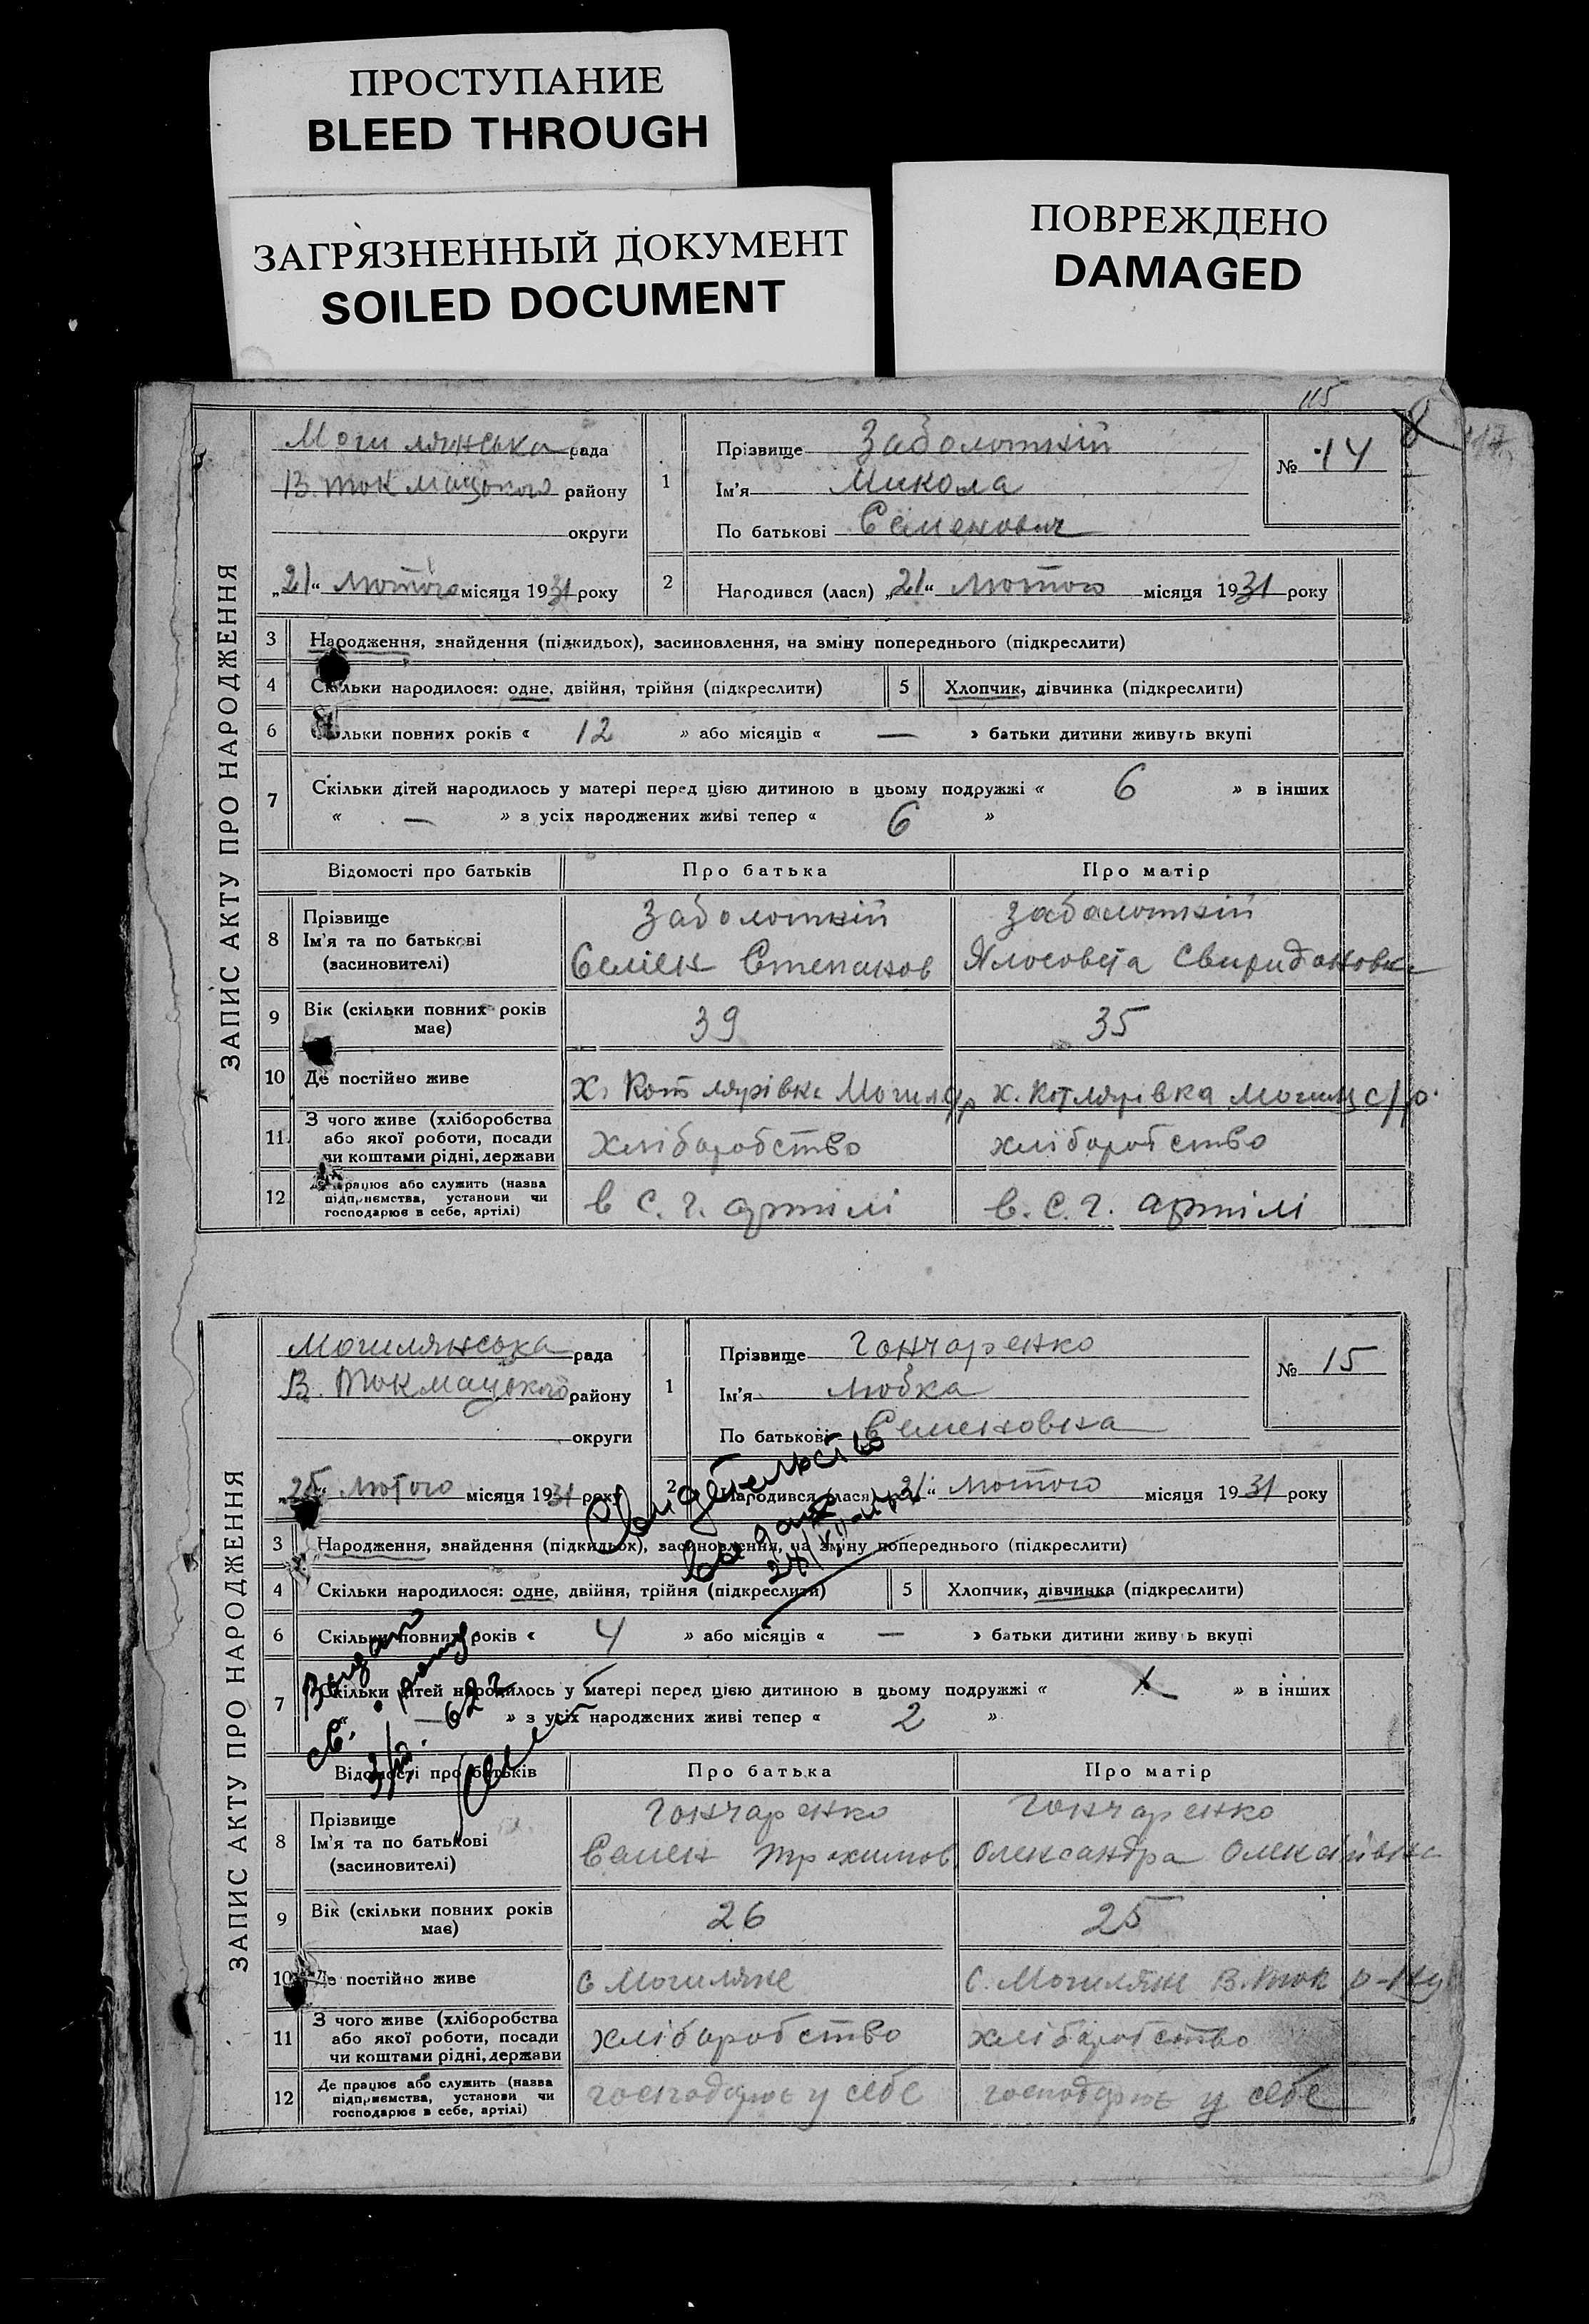 ПРОСТУПАНИЕ
BLEED THROUGH
ЗАГРЯЗНЕННЫЙ ДОКУМЕНТ
SOILED DOCUMENT
ПОВРЕЖДЕНО
DAMAGED
115
ЗАПИС АКТУ ПРО НАРОДЖЕННЯ
Могилянська рада
В. Токмацького району
округи
„21“ Лютого місяця 1931 року
1
Прізвище Заболотній
Ім'я Микола
По батькові Семенович
№ 14
2 Народився (лася) „21“ Лютого місяця 1931 року
3 Народження, знайдення (підкидьок), засиновлення, на зміну попереднього (підкреслити)
4 Скільки народилося: одне, двійня, трійня (підкреслити) 5 Хлопчик, дівчинка (підкреслити)
6 Скільки повних років « 12 » або місяців « — » батьки дитини живуть вкупі
7 Скільки дітей народилось у матері перед цією дитиною в цьому подружжі « 6 » в інших
« — » з усіх народжених живі тепер « 6 »
Відомості про батьків Про батька Про матір
8 Прізвище Заболотній Заболотній
Ім'я та по батькові
(засиновителі) Семен Степанов Свиридоновна
9 Вік (скільки повних років має) 39 35
10 Де постійно живе х. Котлярівка х. Котлярівка с/р.
11 З чого живе (хліборобства
або якої роботи, посади
чи коштами рідні, держави хліборобство хліборобство
12 Де працює або служить (назва
підприємства, установи чи
господарює в себе, артілі) в с. г. артілі в. с. г. артілі
ЗАПИС АКТУ ПРО НАРОДЖЕННЯ
Могилянська рада
В. Токмацького району
округи
„25“ Лютого місяця 1931 року
1
Прізвище Гончаренко
Ім'я Любка
По батькові Семеновна
№ 15
2 Народився (лася) „21“ Лютого місяця 1931 року
Свидетельство
3 Народження, знайдення (підкидьок), засиновлення, на зміну попереднього (підкреслити)
4 Скільки народилося: одне, двійня, трійня (підкреслити) 5 Хлопчик, дівчинка (підкреслити)
6 Скільки повних років « 4 » або місяців « — » батьки дитини живуть вкупі
7 Скільки дітей народилось у матері перед цією дитиною в цьому подружжі « » в інших
« — » з усіх народжених живі тепер « 2 »
Відомості про батьків Про батька Про матір
8 Прізвище Гончаренко Гончаренко
Ім'я та по батькові
(засиновителі) Семен Трохимов Олександра Олексіївна
9 Вік (скільки повних років має) 26 25
10 Де постійно живе с Могиляне С. Могиляне В. Ток р-ну
11 З чого живе (хліборобства
або якої роботи, посади
чи коштами рідні, держави хліборобство хліборобство
12 Де працює або служить (назва
підприємства, установи чи
господарює в себе, артілі) господарює у себе господарює у себе